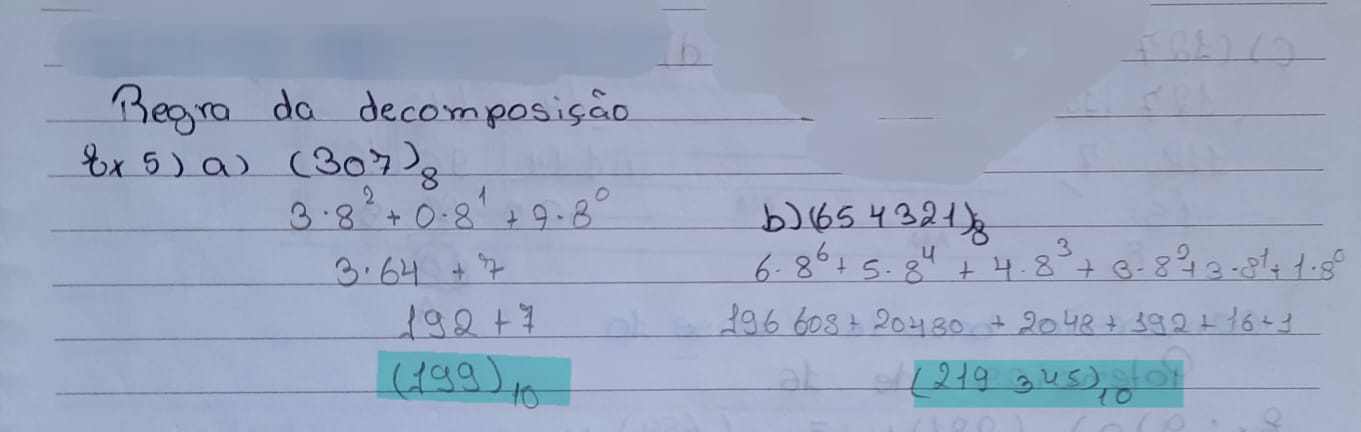 Regra da decomposição
Ex 5) a) (307)₈
3·8² + 0·8¹ + 7·8⁰
3·64 + 7
192 + 7
(199)₁₀
b) (654321)₈
6·8⁶ + 5·8⁴ + 4·8³ + 3·8² + 3·8¹ + 1·8⁰
196 608 + 20480 + 2048 + 192 + 16 + 1
(219 345)₁₀